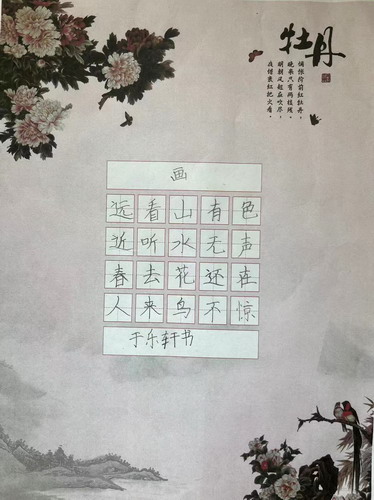 牡丹
惆怅阶前红牡丹，
晚来只有两枝残。
明朝风起应吹尽，
夜惜衰红把火看。
画
远看山有色
近听水无声
春去花还在
人来鸟不惊
于乐轩书